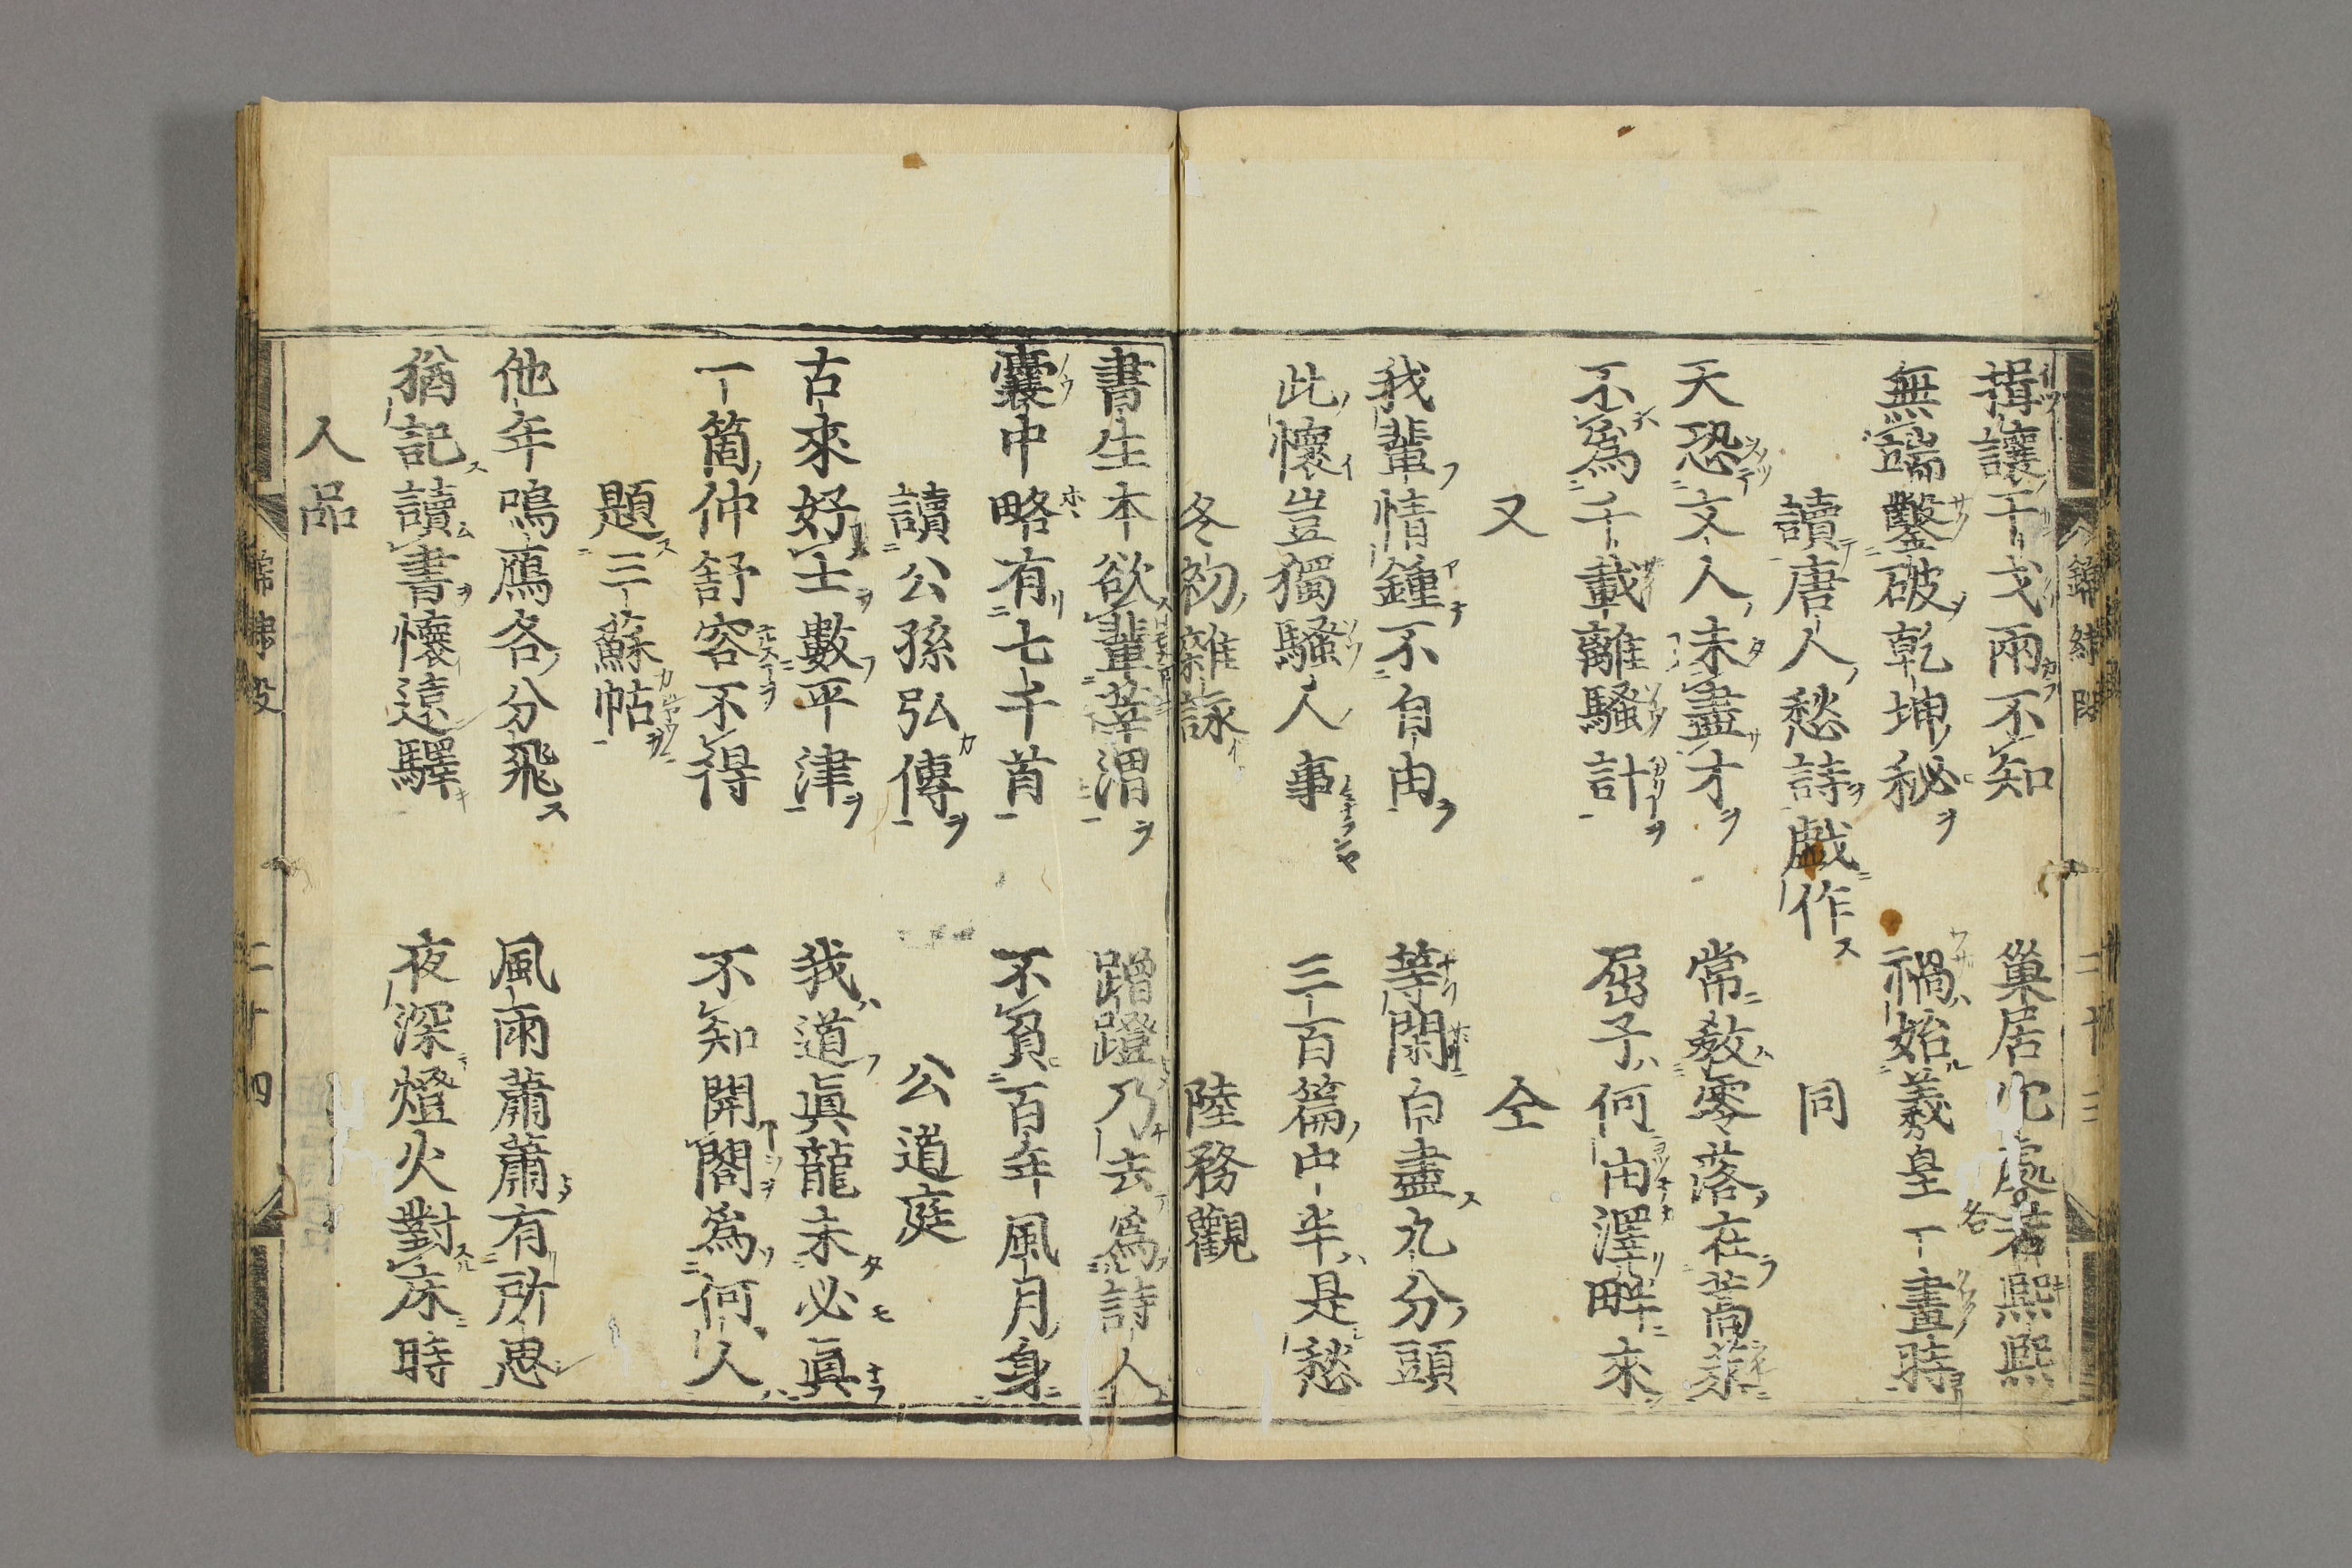 揖讓干戈兩不知　巢居穴處若熙熙
無端鑿破乾坤秘　禍始羲皇一畫時
讀唐人愁詩戲作　同
天恐文人未盡才　常教零落在蒿萊
不爲千載離騷計　屈子何由澤畔來
又　仝
我輩情鍾不自由　等閑白盡九分頭
此懷豈獨騷人事　三百篇中半是愁
冬初雜詠　陸務觀
書生本欲輩莘渭　蹭蹬乃去爲詩人
囊中略有七千首　不負百年風月身
讀公孫弘傳　公道庭
古來好士數平津　我道眞龍未必眞
一箇仲舒容不得　不知開閣爲何人
題三蘇帖
他年嗚鴈各分飛　風雨蕭蕭有所思
猶記讀書懷遠驛　夜深燈火對床時
人品
二十四